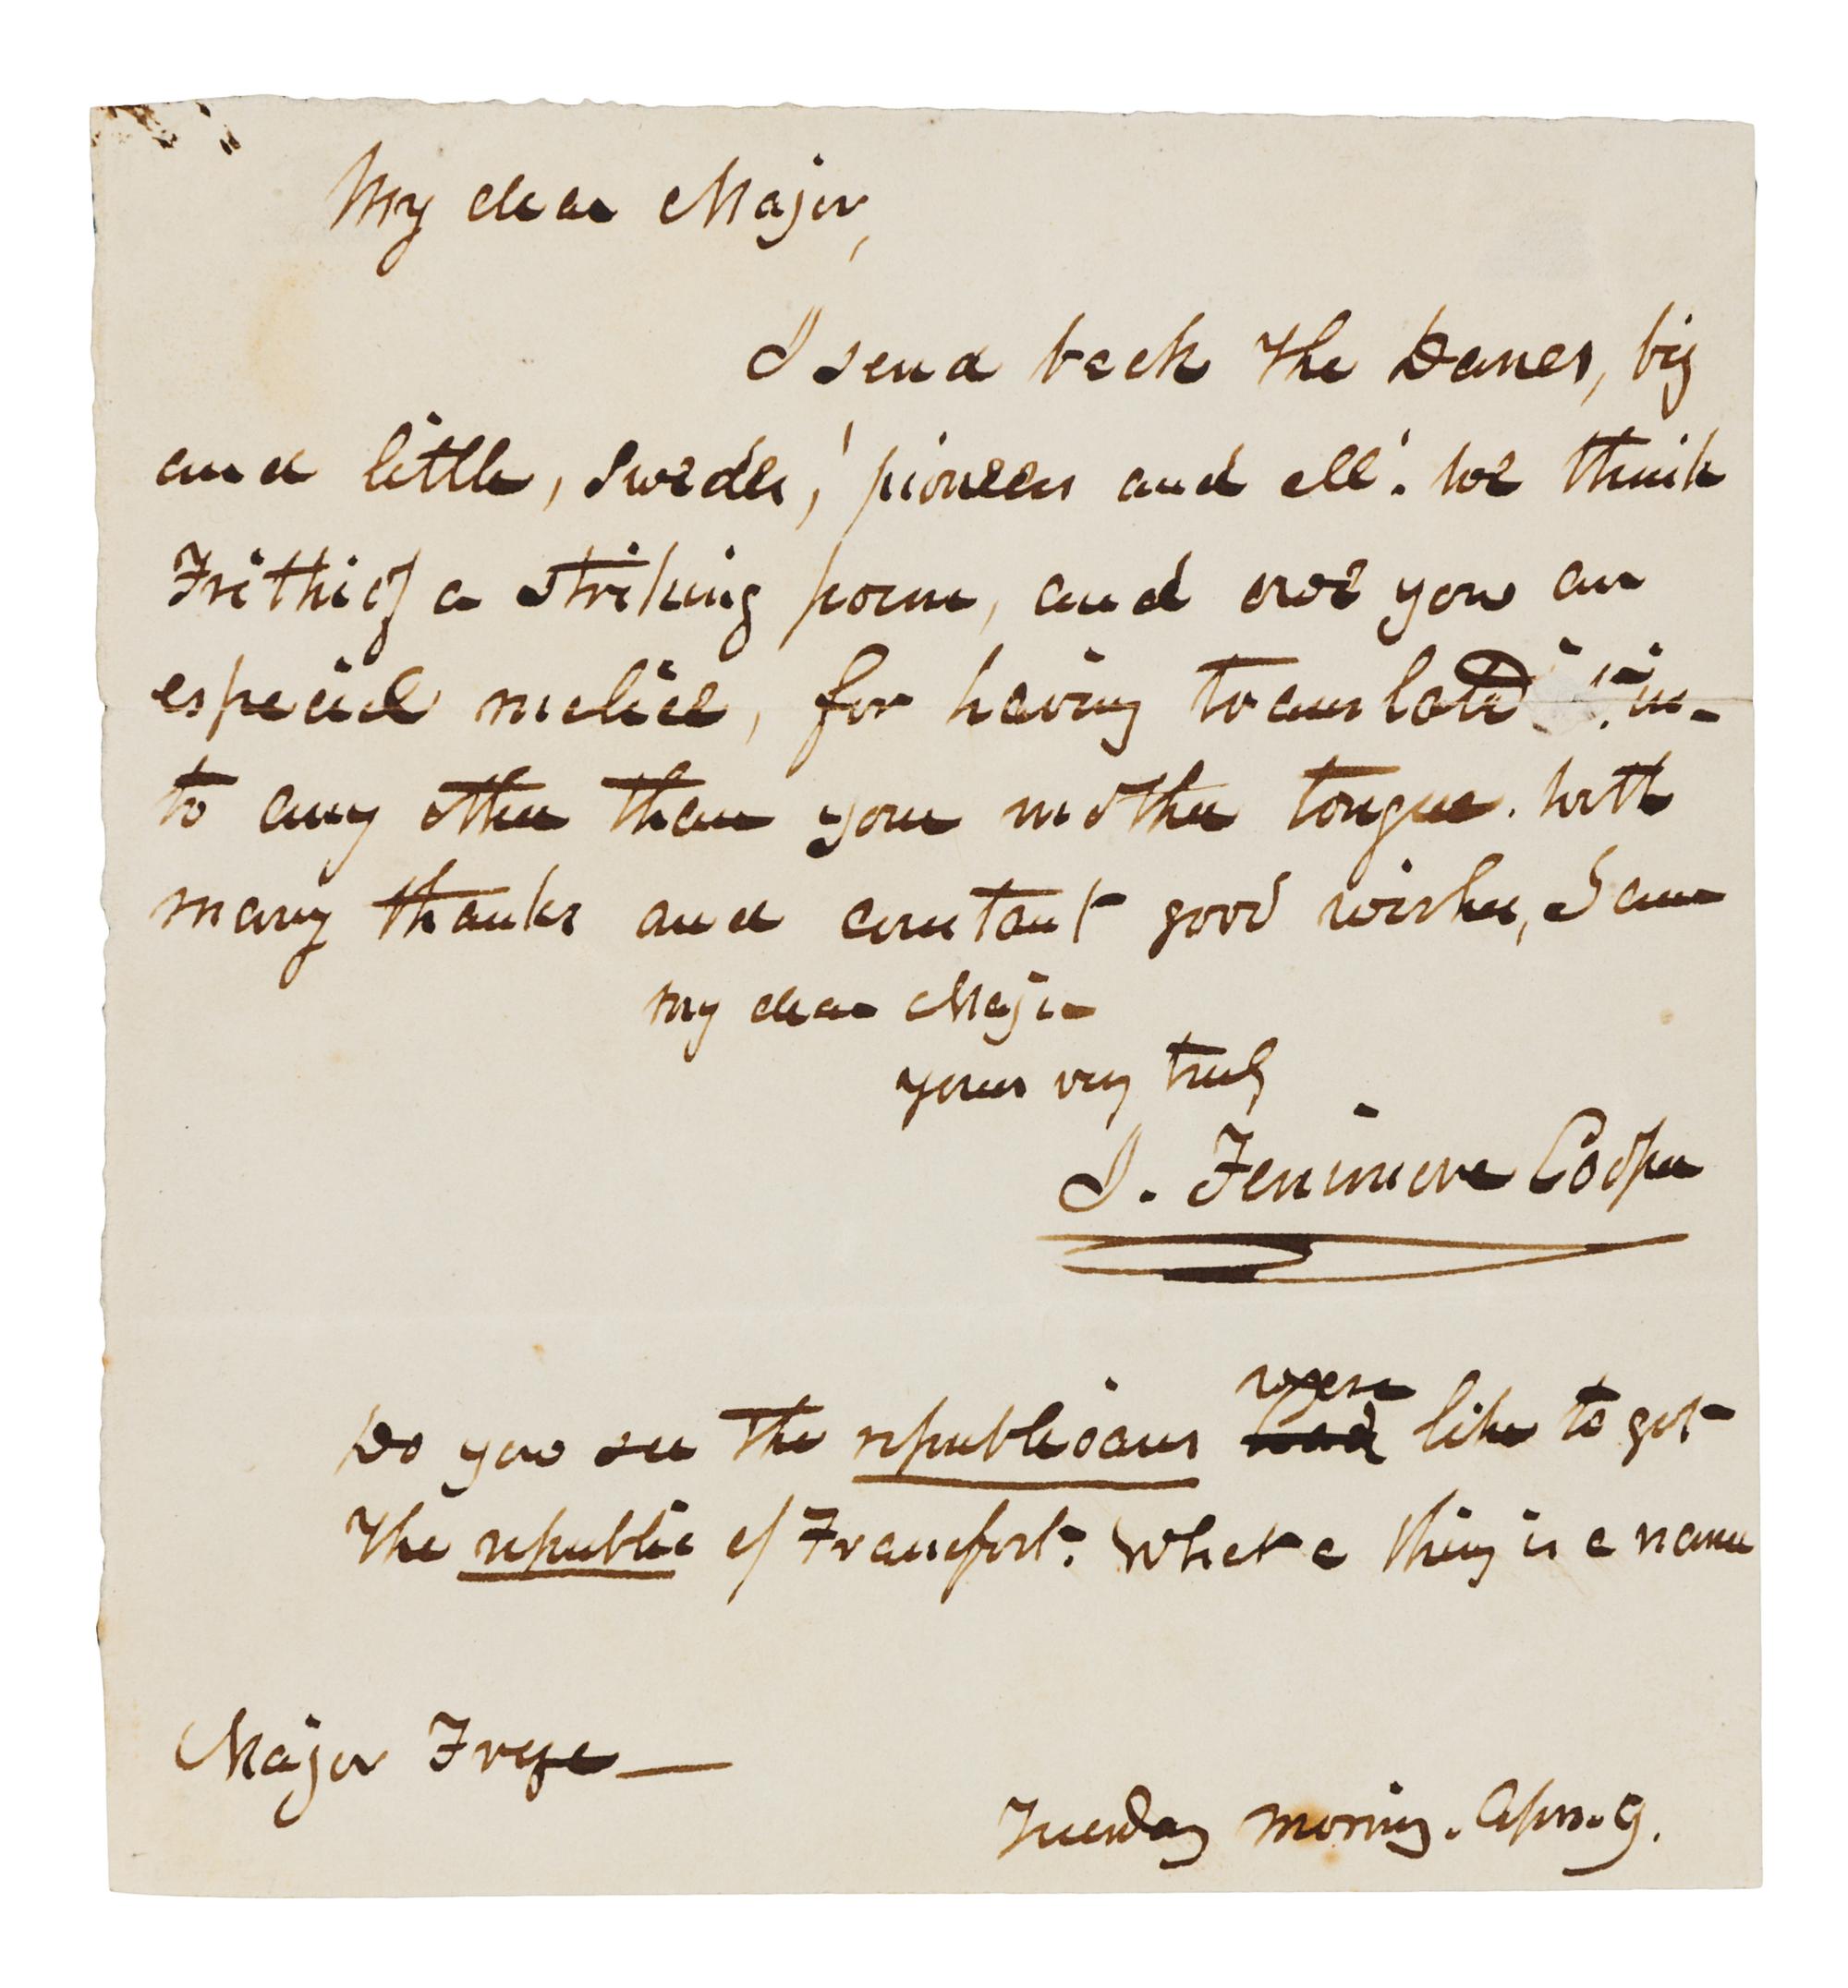 My dear Major,
I send back the Danes, big
and little, Swedes, pioneers and all. We think
Frithiof a striking poem, and owe you an
especial malice, for having translated it in-
to any other than your mother tongue. With
many thanks and constant good wishes, I am
My dear Major
yours very truly
J. Fenimore Cooper
were
Do you see the republicans had like to get
the republic of Francfort. What a thing is a name
Major Frye—
Tuesday morning. Apr. 9.